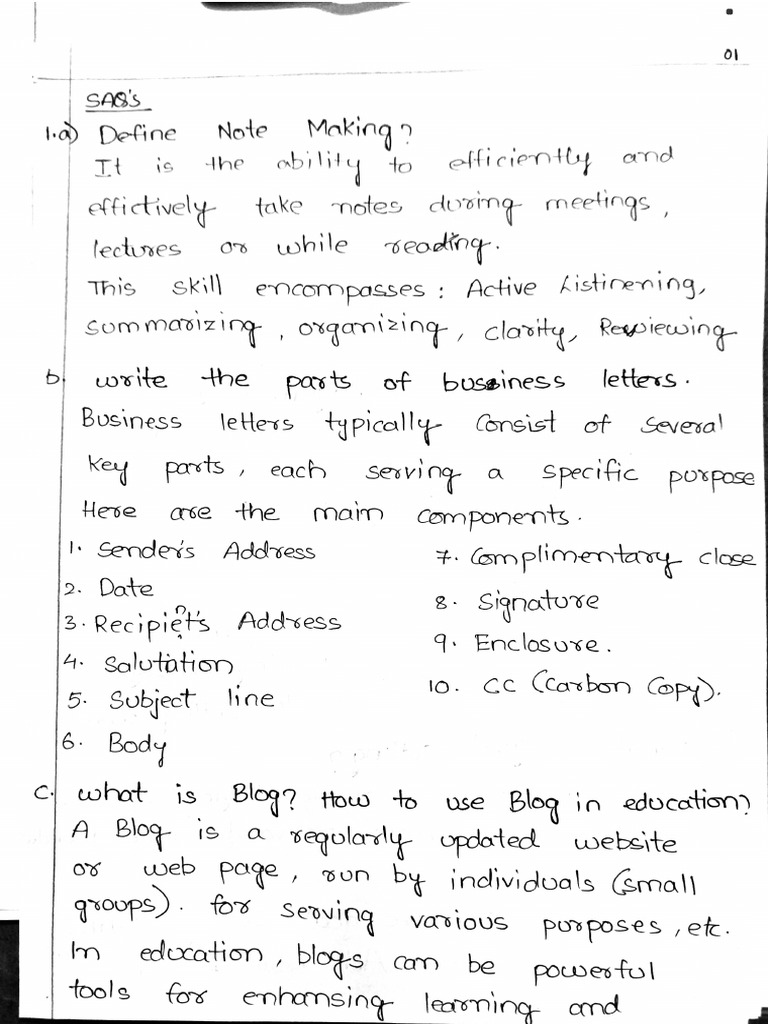 01
SAQ's
1.a) Define Note Making?
It is the ability to efficiently and
effictively take notes during meetings,
lectures or while reading.
This skill encompasses: Active Listinening,
summarizing, organizing, clarity, Reviewing
b. write the parts of business letters.
Business letters typically consist of several
key parts, each serving a specific purpose
Here are the main components.
1. Sender's Address
2. Date
3. Recipiet's Address
4. Salutation
5. Subject line
6. Body
7. Complimentary close
8. Signature
9. Enclosure.
10. CC (Carbon Copy).
c. what is Blog? How to use Blog in education?
A Blog is a regularly updated website
or web page, run by individuals (small
groups). for serving various purposes, etc.
In education, blogs can be powerful
tools for enhansing learning and